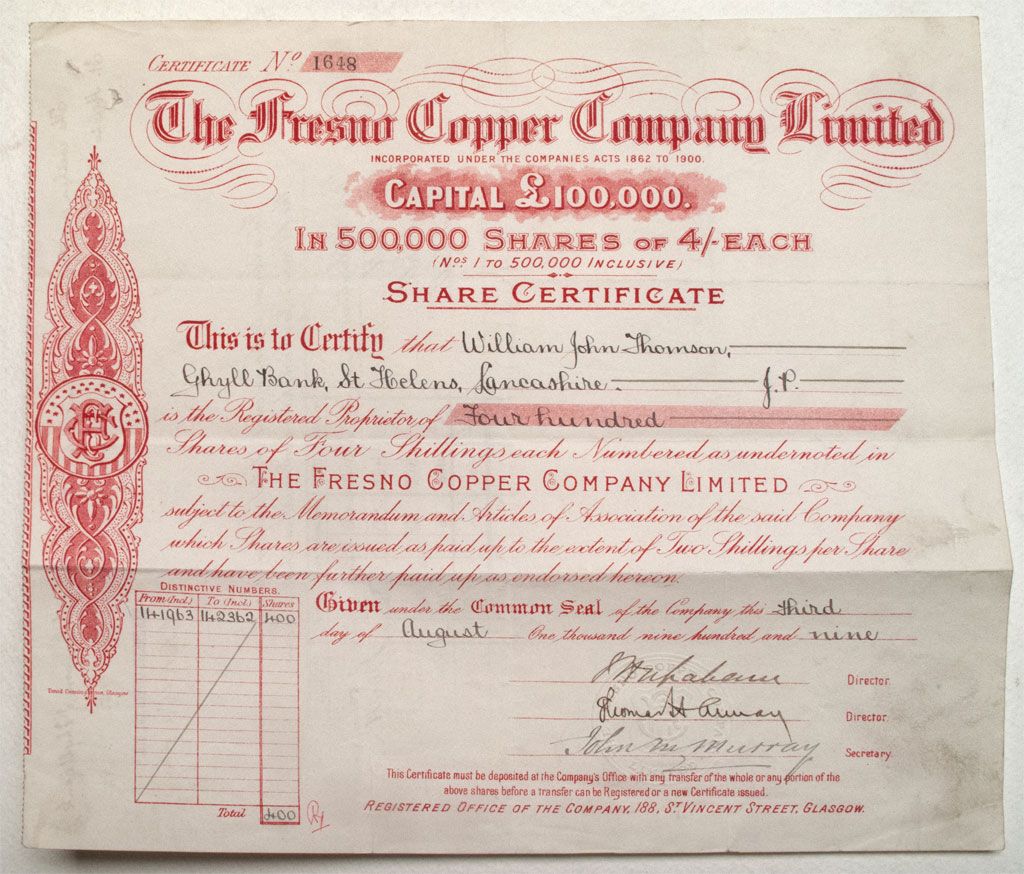 Certificate No. 1648
The Fresno Copper Company Limited
INCORPORATED UNDER THE COMPANIES ACTS 1862 TO 1900.
CAPITAL £100,000.
IN 500,000 SHARES OF 4/- EACH
(Nos. 1 TO 500,000 INCLUSIVE)
SHARE CERTIFICATE
This is to Certify that William John Thomson,
Ghyll Bank, St Helens, Lancashire. J.P.
is the Registered Proprietor of Four hundred
Shares of Four Shillings each Numbered as undernoted in
THE FRESNO COPPER COMPANY LIMITED
subject to the Memorandum and Articles of Association of the said Company
which Shares are issued as paid up to the extent of Two Shillings per Share
and have been further paid up as endorsed hereon.
DISTINCTIVE NUMBERS.
From (Incl.) To (Incl.) Shares
141963 142362 400
Total 400
Given under the Common Seal of the Company this Third
day of August One thousand nine hundred and nine
Director.
Director.
John M Murray Secretary.
This Certificate must be deposited at the Company's Office with any transfer of the whole or any portion of the
above shares before a transfer can be Registered or a new Certificate issued.
REGISTERED OFFICE OF THE COMPANY, 188, ST VINCENT STREET, GLASGOW.